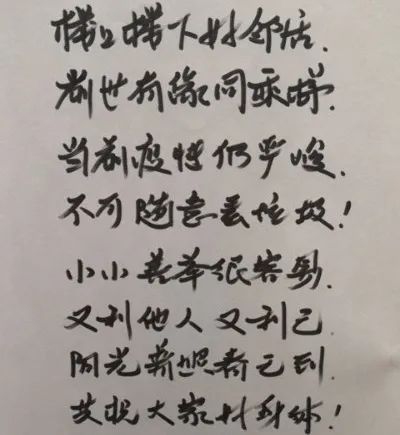 楼上楼下好邻居.
前世有缘同乘梯.
当前疫情仍严峻.
不可随意丢垃圾!
小小善举很容易.
又利他人又利己.
阳光普照春已到.
共祝大家好身体!